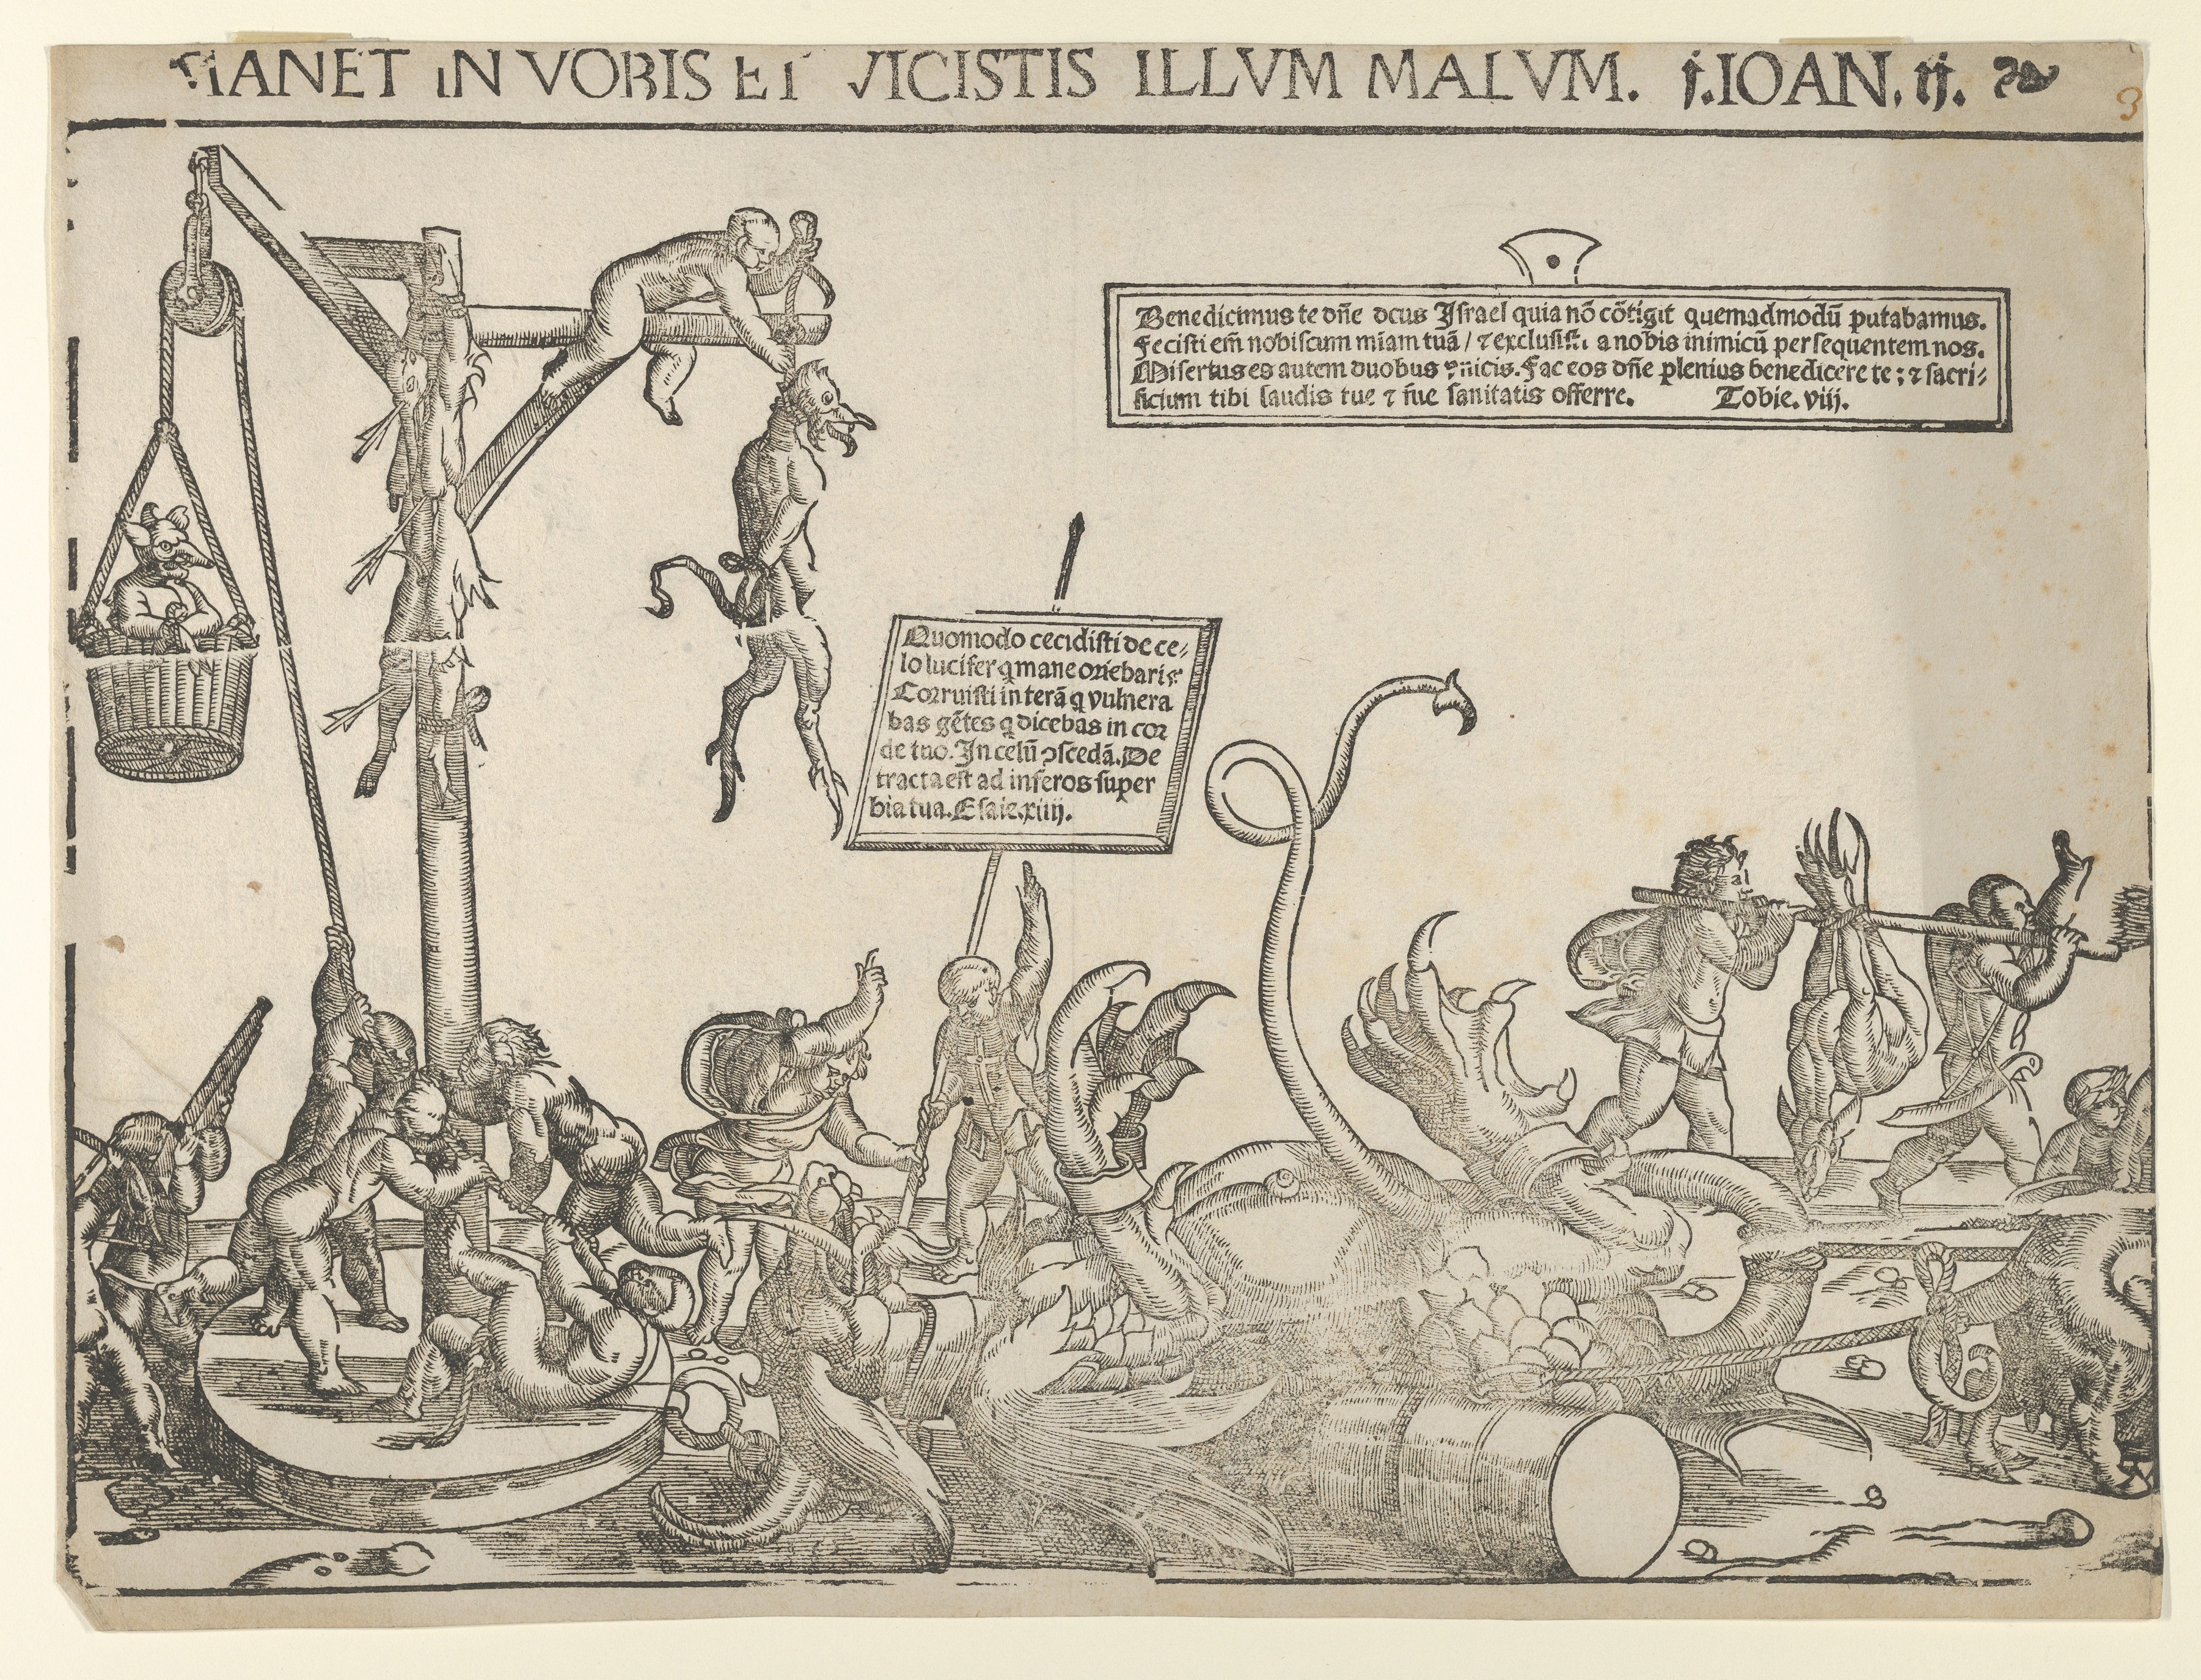 MANET IN VOBIS ET VICISTIS ILLVM MALVM. j. IOAN. ij.
3
Benedicimus te dn̄e deus Israel quia nō cōtigit quemadmodū putabamus.
Fecisti em̄ nobiscum miam tuā / ⁊ exclusisti a nobis inimicū persequentem nos.
Misertus es autem duobus ꝯnicis. Fac eos dn̄e plenius benedicere te: ⁊ sacri⸗
ficium tibi laudis tue ⁊ sue sanitatis offerre. Tobie. viij.
Quomodo cecidisti de ce⸗
lo lucifer q mane oriebaris
Corruisti in terā q vulnera
bas gētes q dicebas in cor
de tuo. In celū ꝯscedā. De
tracta est ad inferos super
bia tua. Esaie. xiiij.